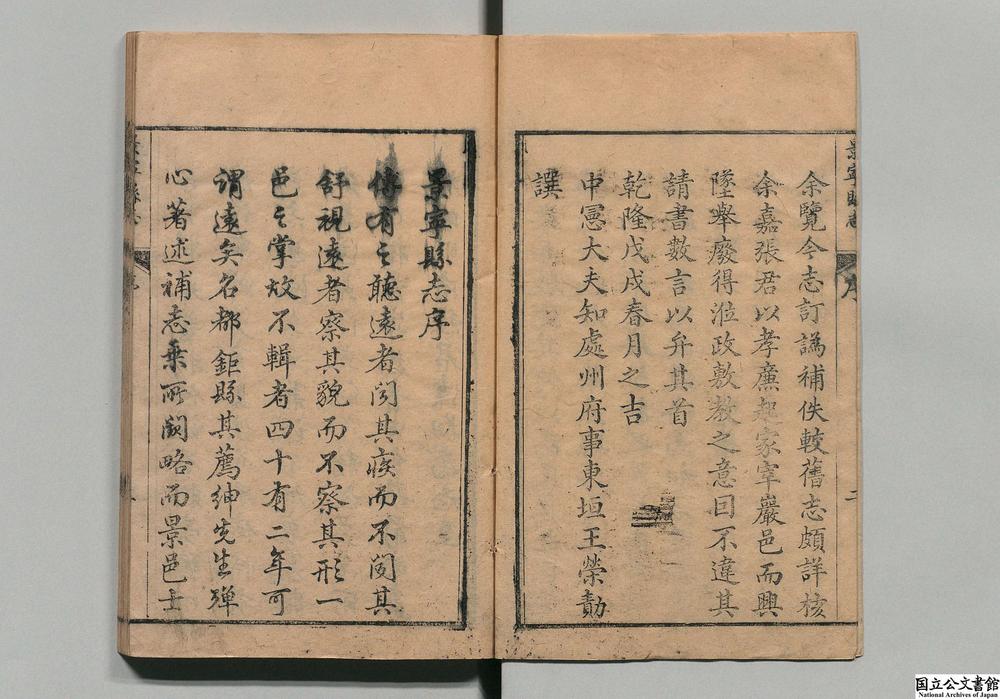 余覽今志訂譌補佚較舊志頗詳核
余嘉張君以孝廉起家宰巖邑而興
墜舉廢得涖政敷教之意因不違其
請書數言以弁其首
乾隆戊戌春月之吉
中憲大夫知處州府事東垣王榮勣
譔
景寧縣志序
傳有之聽遠者聞其疾而不聞其
舒視遠者察其貌而不察其形一
邑之掌故不輯者四十有二年可
謂遠矣名都鉅縣其薦紳先生殫
心著述補志乗所闕略而景邑士
景寧縣志
序
二
国立公文書館
National Archives of Japan